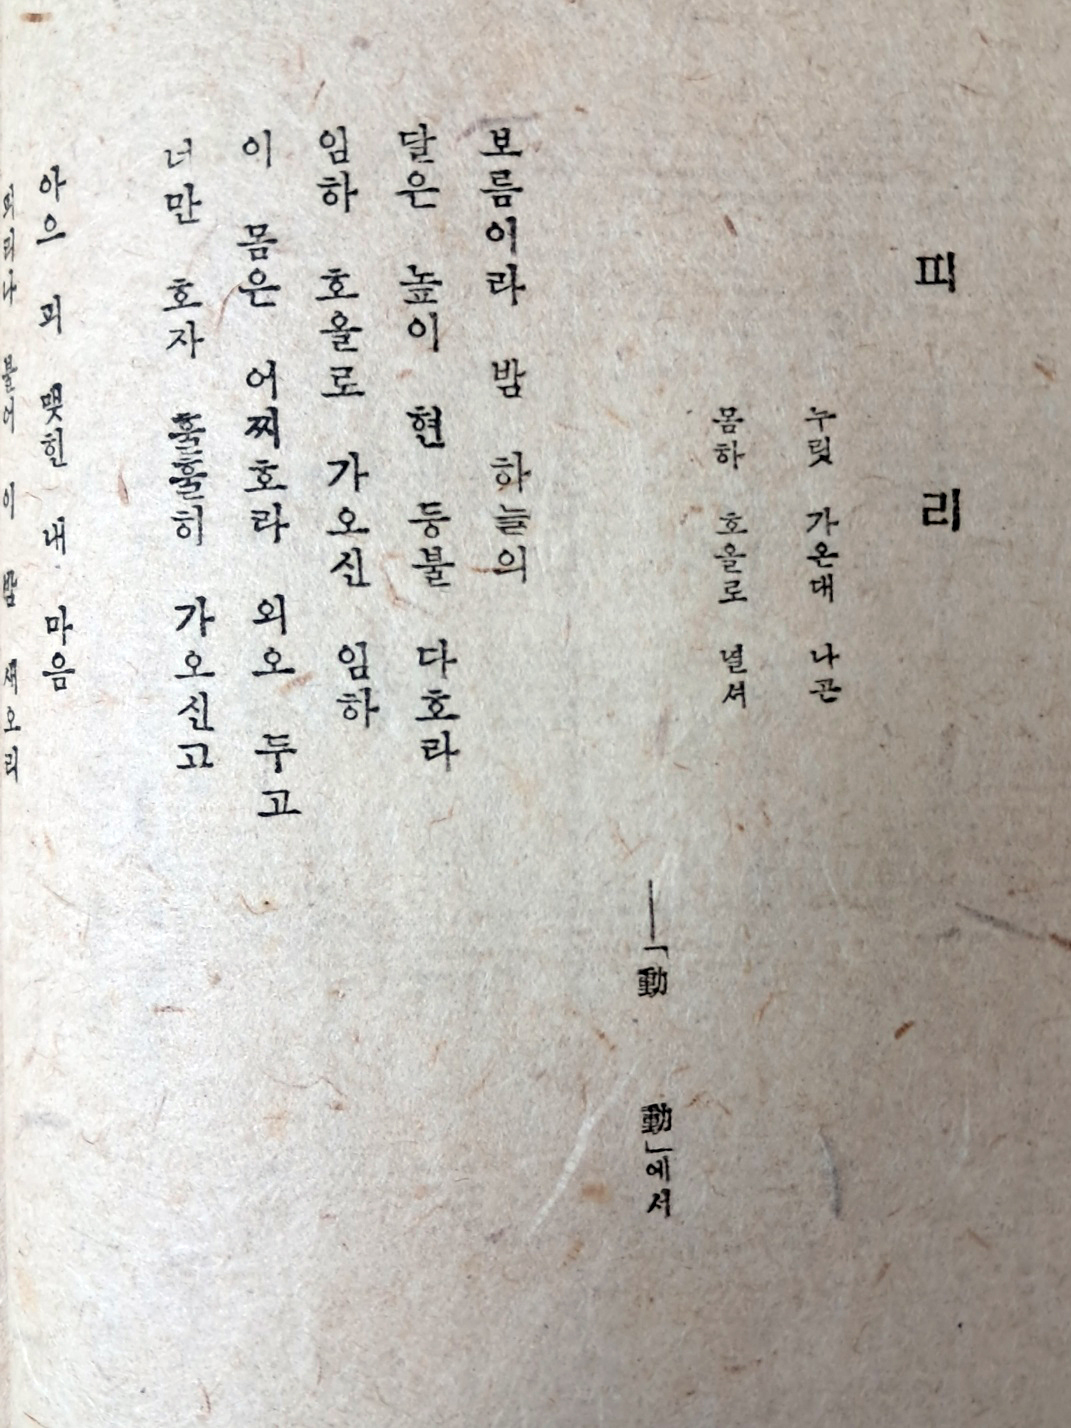 피리
누릿 가온대 나곤
몸하 호올로 녈셔
―「動動」에서
보름이라 밤 하늘의
달은 높이 현 등불 다호라
임하 호올로 가오신 임하
이 몸은 어찌호라 외오 두고
너만 호자 훌훌히 가오신고
아으 피 맺힌 내 마음
피리나 불어 이 밤 새오리